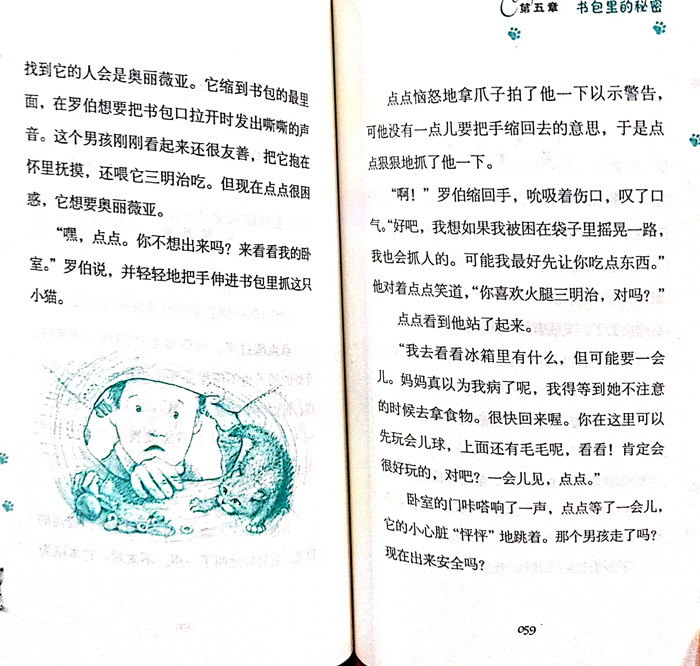 找到它的人会是奥丽薇亚。它缩到书包的最里
面，在罗伯想要把书包口拉开时发出嘶嘶的声
音。这个男孩刚刚看起来还很友善，把它抱在
怀里抚摸，还喂它三明治吃。但现在点点很困
惑，它想要奥丽薇亚。
“嘿，点点。你不想出来吗？来看看我的卧
室。”罗伯说，并轻轻地把手伸进书包里抓这只
小猫。
第五章 书包里的秘密
点点恼怒地拿爪子拍了他一下以示警告，
可他没有一点儿要把手缩回去的意思，于是点
点狠狠地抓了他一下。
“啊！”罗伯缩回手，吮吸着伤口，叹了口
气。“好吧，我想如果我被困在袋子里摇晃一路，
我也会抓人的。可能我最好先让你吃点东西。”
他对着点点笑道，“你喜欢火腿三明治，对吗？”
点点看到他站了起来。
“我去看看冰箱里有什么，但可能要一会
儿。妈妈真以为我病了呢，我得等到她不注意
的时候去拿食物。很快回来喔。你在这里可以
先玩会儿球，上面还有毛毛呢，看看！肯定会
很好玩的，对吧？一会儿见，点点。”
卧室的门咔嗒响了一声，点点等了一会儿，
它的小心脏“怦怦”地跳着。那个男孩走了吗？
现在出来安全吗？
059